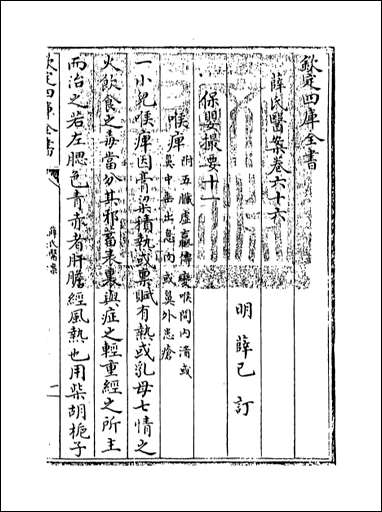 欽定四庫全書
薛氏醫案卷六十六
明 薛己 訂
保嬰撮要十一
喉痺附五臟虛羸傳變喉間內潰或
鼻中無出息內或鼻外患瘡
一小兒喉痺因膏粱積熱或禀賦有熱或乳母七情之
火飲食之毒當分其邪蓄表裏與症之輕重經之所主
而治之若左腮色青赤者肝膽經風熱也用柴胡梔子
欽定四庫全書
薛氏醫案